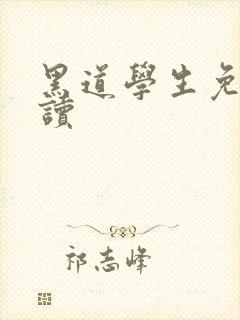 黑道學生免
讀
祁志峰